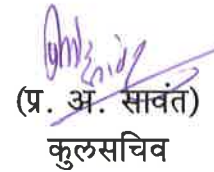 (प्र. अ. सावंत)
कुलसचिव